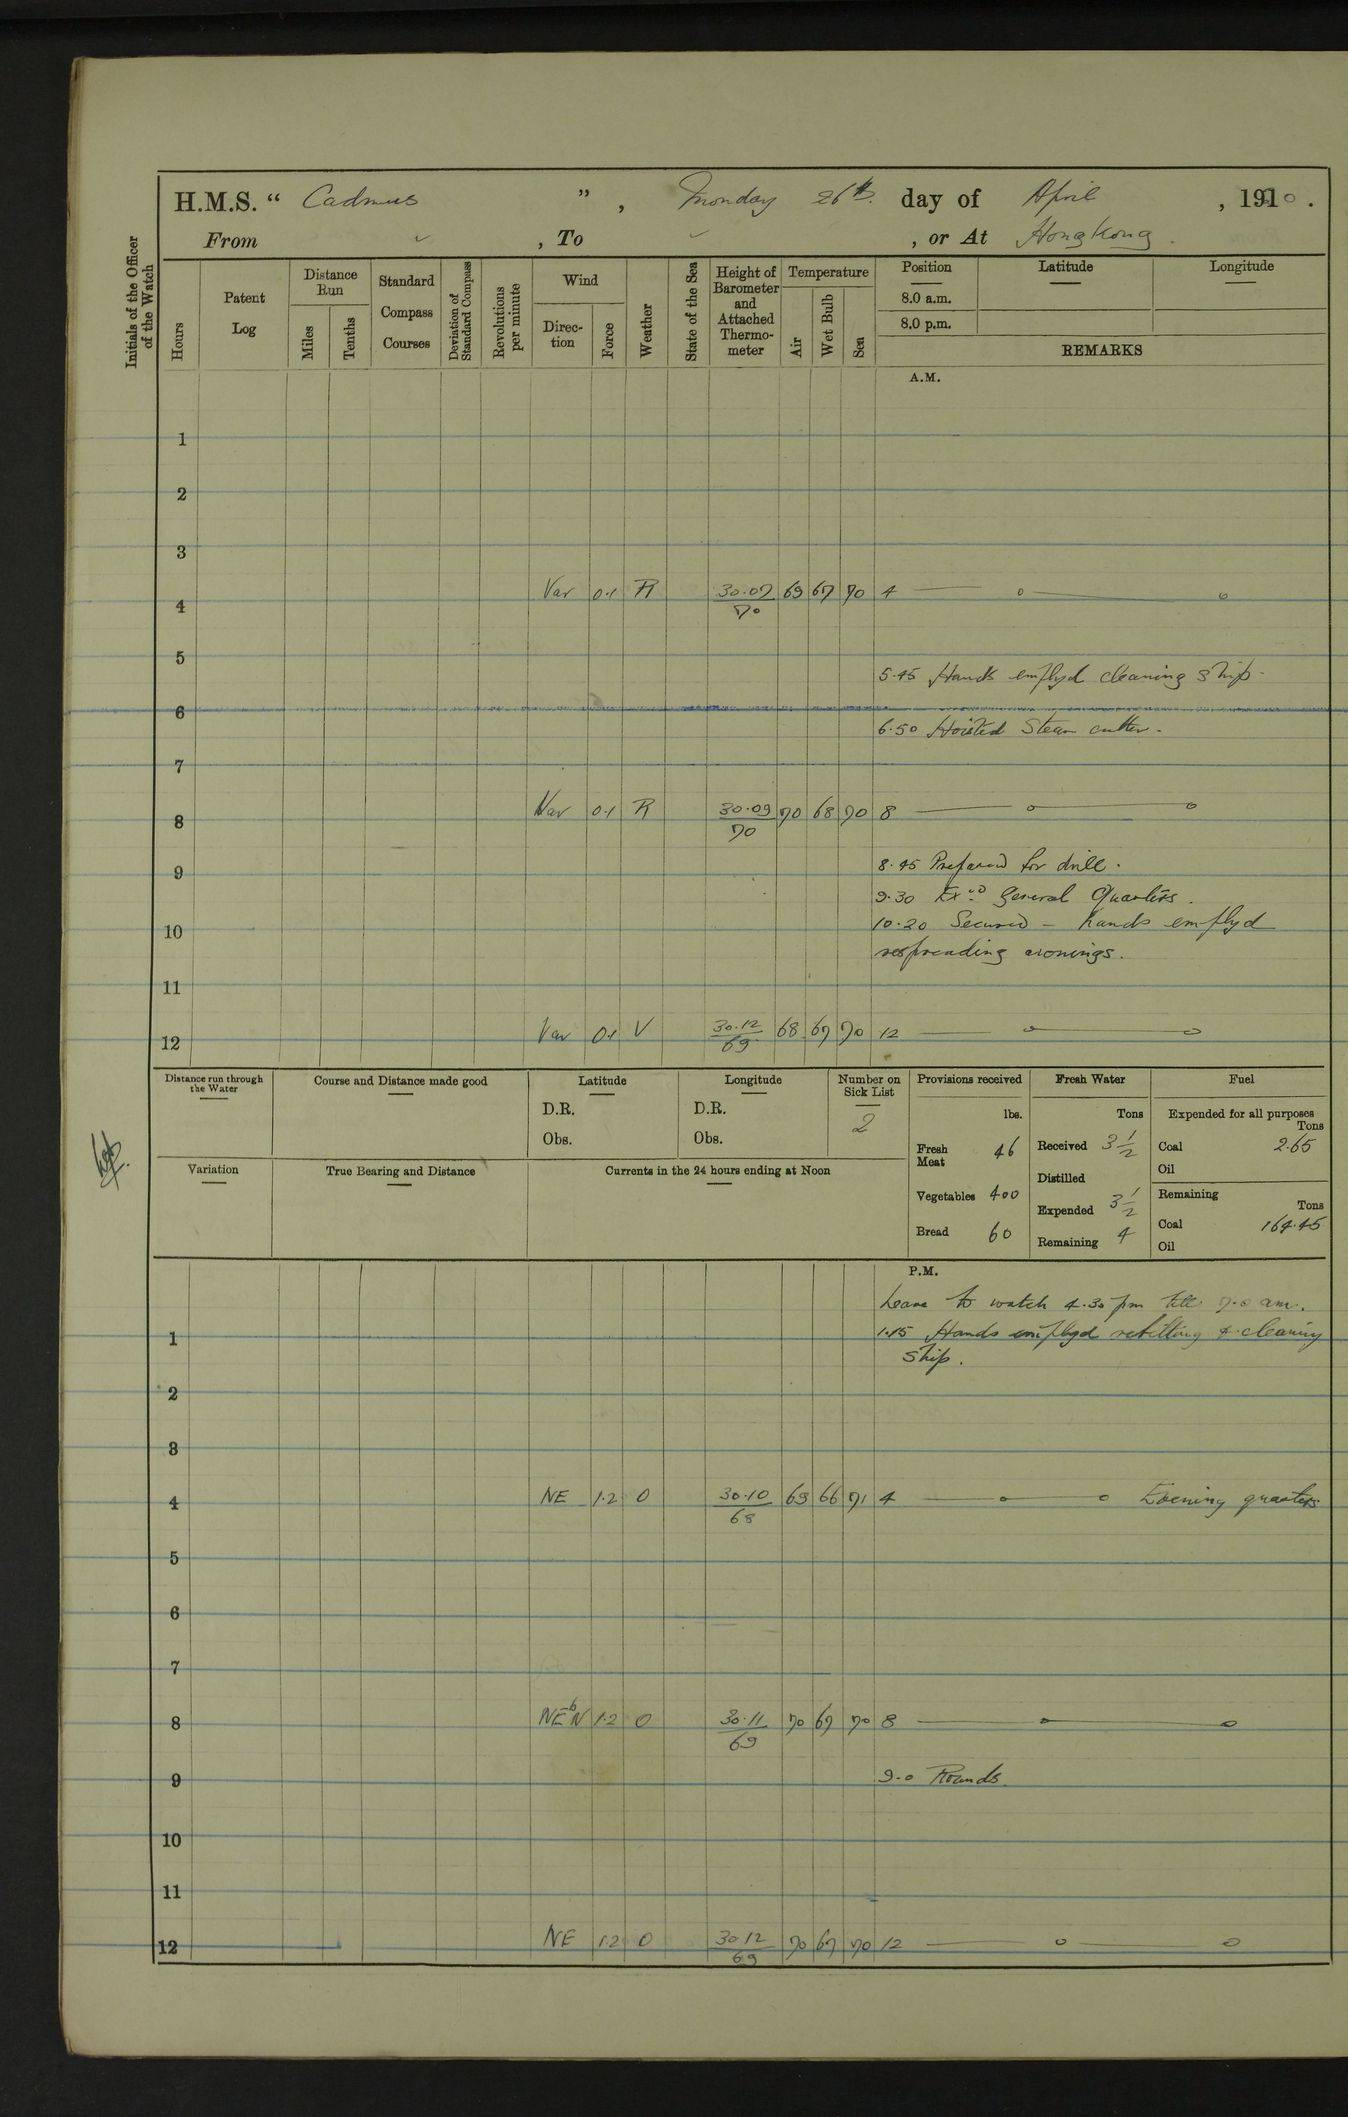 H.M.S. “ Cadmus ”, Monday 26th. day of April, 1920.
From ✓, To ✓, or At Hong Kong.
Initials of the Officer of the Watch
Hours
Patent Log
Distance Run
Miles
Tenths
Standard Compass Courses
Deviation of Standard Compass
Revolutions per minute
Wind
Direction
Force
Weather
State of the Sea
Height of Barometer and Attached Thermometer
Temperature
Air
Wet Bulb
Sea
Position Latitude Longitude
8.0 a.m.
8.0 p.m.
REMARKS
A.M.
1
2
3
4 Var 0.1 R 30.07/70 69 67 70 4 — o — o
5
5.45 Hands employd cleaning ship.
6
6.50 Hoisted Steam cutter.
7
8 Var 0.1 R 30.09/70 70 68 70 8 — o — o
8.45 Prepared for drill.
9
9.30 Exd General Quarters.
10.20 Secured – hands employd
10
respreading awnings.
11
12 Var 0.1 V 30.12/69 68 67 70 12 — o — o
Distance run through the Water
Course and Distance made good
Latitude
D.R.
Obs.
Longitude
D.R.
Obs.
Number on Sick List
2
Provisions received
lbs.
Fresh Meat 46
Vegetables 400
Bread 60
Fresh Water
Tons
Received 3 1/2
Distilled
Expended 3 1/2
Remaining 4
Fuel
Expended for all purposes
Tons
Coal 2.65
Oil
Remaining
Tons
Coal 164.45
Oil
Variation
True Bearing and Distance
Currents in the 24 hours ending at Noon
P.M.
Leave to watch 4.30 pm till 7.0 am.
1 1.15 Hands employd refitting & cleaning
ship.
2
3
4 NE 1.2 O 30.10/68 69 66 71 4 — o — o Evening quarters
5
6
7
8 NEbN 1.2 O 30.11/69 70 67 70 8 — o — o
9 9.0 Rounds.
10
11
12 NE 1.2 O 30 12/69 70 67 70 12 — o — o